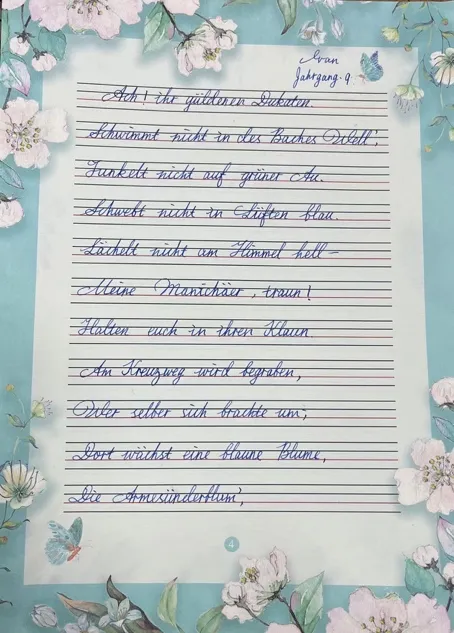 Ivan
Jahrgang 9
Ach! ihr güldenen Dukaten.
Schwimmt nicht in des Baches Well',
Funkelt nicht auf grüner Au.
Schwebt nicht in Lüften blau.
Lächelt nicht am Himmel hell –
Meine Manichäer, traun!
Halten euch in ihren Klaun.
Am Kreuzweg wird begraben,
Wer selber sich brachte um;
Dort wächst eine blaune Blume,
Die Armesünderblum',
4